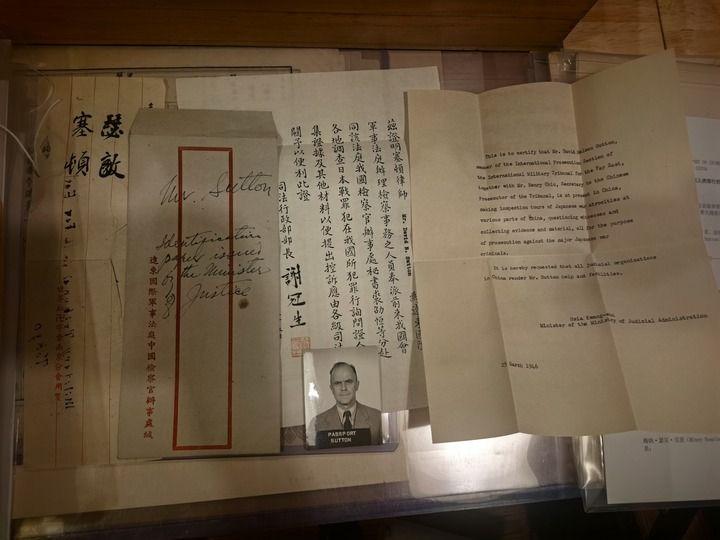 塞頓
Mr. Sutton
Identification
paper issued
by the Minister
of
Justice
遠東國際軍事法庭中國檢察官辦事處緘
茲證明塞頓律師
軍事法庭辦理檢察事務之人員奉派前來我國會
同該法庭我國檢察官辦事處秘書裘劭恒等分赴
各地調查日本戰罪犯在我國所犯罪行詢問證人
集證據及其他材料以便提出控訴應由各級司
關予以便利此證
司法行政部部長 謝冠生
PASSPORT
SUTTON
This is to certify that Mr. David Nelson Sutton,
member of the International Prosecution Section of
the International Military Tribunal for the Far East,
together with Mr. Henry Chiu, Secretary to the Chinese
Prosecutor of the Tribunal, is at present in China,
making inspection tours of Japanese war atrocities at
various parts of China, questioning witnesses and
collecting evidence and material, all for the purpose
of prosecution against the major Japanese war
criminals.
It is hereby requested that all judicial organizations
in China render Mr. Sutton help and facilities.
Minister of the Ministry of Judicial Administration
March 1946